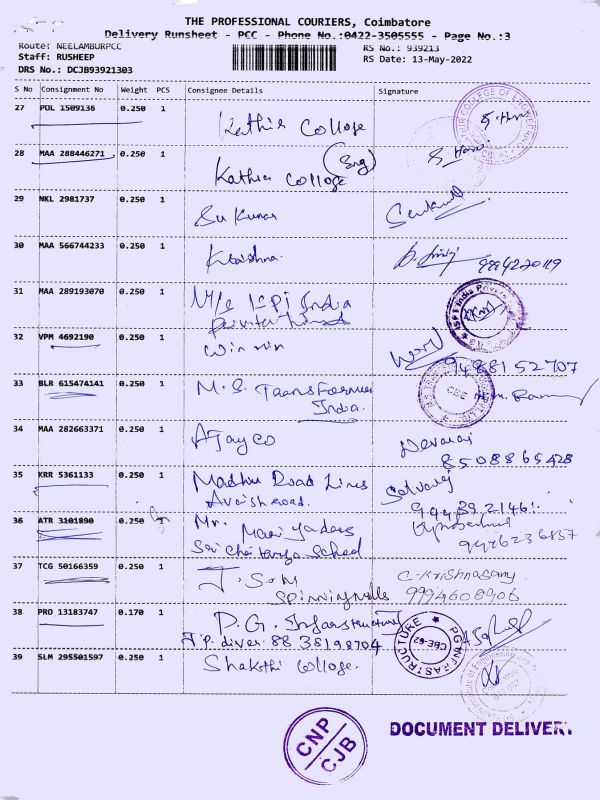 THE PROFESSIONAL COURIERS, Coimbatore
Delivery Runsheet - PCC - Phone No.:0422-3505555 - Page No.:3
Route: NEELAMBURPCC RS No.: 939213
Staff: RUSHEEP RS Date: 13-May-2022
DRS No.: DCJB93921303
S No Consignment No Weight PCS Consignee Details Signature
27 POL 1509136 0.250 1 Kathir College
28 MAA 288446271 0.250 1 Kathir College (Eng)
29 NKL 2981737 0.250 1 Su Kumar
30 MAA 566744233 0.250 1 Krishna. 9994270119
31 MAA 289193070 0.250 1 M/s ISPI India
Private Limited
32 VPM 4692190 0.250 1 Win win
9488152707
33 BLR 615474141 0.250 1 M.S. Transformer
India.
34 MAA 282663371 0.250 1 Ajay co Devaraj
8508865428
35 KRR 5361133 0.250 1 Madhu Road Lines Selvaraj
Avinashi road.
36 ATR 3101890 0.250 1 Mr.
Sri Chaitanya School 9976236837
37 TCG 50166359 0.250 1 J.S.M C-Krishnasamy
Spinning mills 9994608906
38 PRO 13183747 0.170 1 P.G. Infrastructure
88 38198704
PG INFRASTRUCTURE
CBE-62
39 SLM 295501597 0.250 1 Shakthi College.
CNP
CJB
DOCUMENT DELIVERY